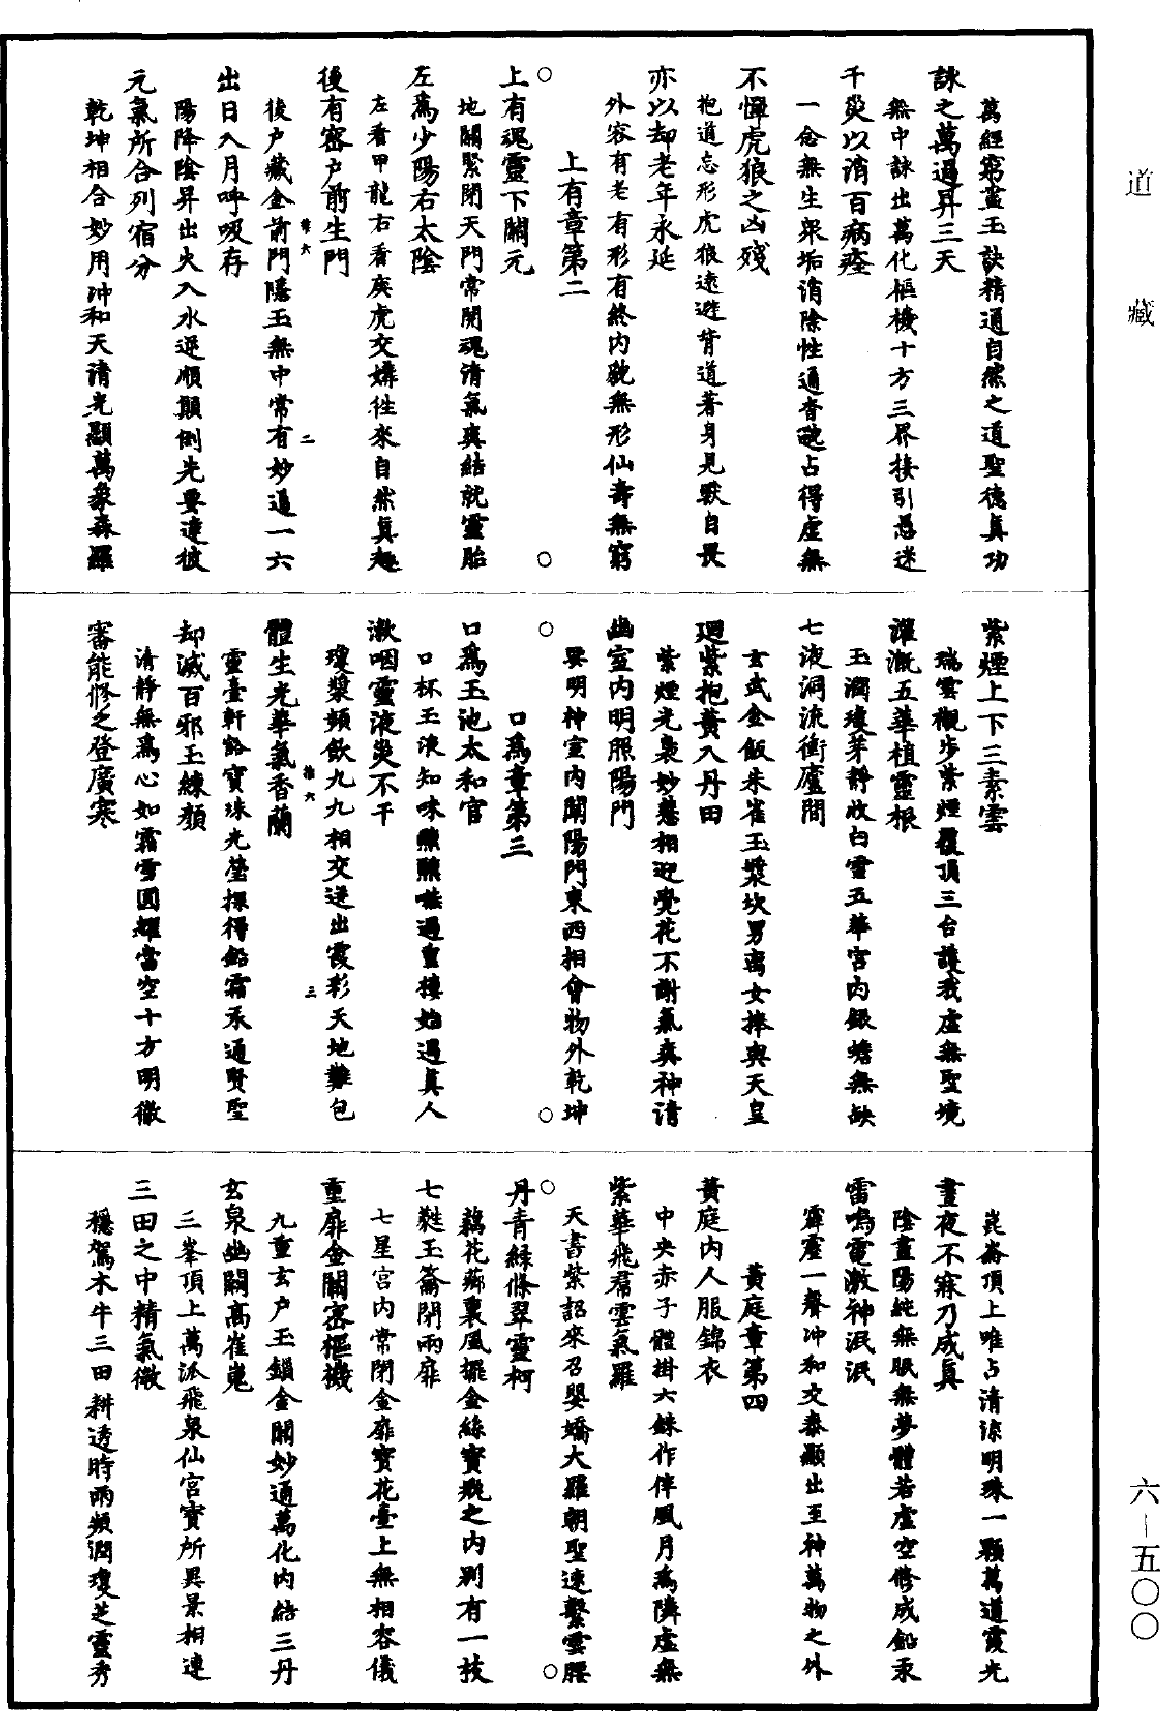 道藏
萬經窮盡玉訣精通自然之道聖德真功
詠之萬過昇三天
無中詠出萬化樞機十方三界接引愚迷
千災以消百病痊
一念無生眾垢消除性通杳𠖇占得虛無
不憚虎狼之凶殘
抱道忘形虎狼遠避背道著身見獸自畏
亦以却老年永延
外容有老有形有終內貌無形仙壽無窮
上有章第二
○ ○
上有魂靈下關元
地關緊閉天門常開魂清氣爽結就靈胎
左為少陽右太陰
左看甲龍右看庚虎交媾往來自然真趣
後有密戶前生門
推六 二
後戶藏金前門隱玉無中常有妙通一六
出日入月呼吸存
陽降陰昇出火入水逆順顛倒先要達彼
元氣所合列宿分
乾坤相合妙用冲和天清光顯萬象森羅
紫煙上下三素雲
瑞雲襯步紫煙覆頂三台護我虛無聖境
灌溉五華植靈根
玉澗瓊芽靜收白雪五華宮內銀蟾無缺
七液洞流衝廬間
玄武金飯朱雀玉漿坎男离女捧與天皇
廻紫抱黃入丹田
紫煙光裊妙蕙相迎覺花不謝氣爽神清
幽室內明照陽門
畢明神室內開陽門東西相會物外乾坤
○ ○
口為章第三
口為玉池太和官
口杯玉液知味醺醺嚥過重樓始遇真人
漱咽靈液災不干
瓊漿頻飲九九相交迸出霞彩天地難包
推六 三
體生光華氣香蘭
靈臺軒豁寶珠光瑩探得鉛霜永通賢聖
却滅百邪玉練顏
清靜無為心如霜雪圓耀當空十方明徹
審能修之登廣寒
崑崙頂上唯占清涼明珠一顆萬道霞光
晝夜不寐乃成真
陰盡陽純無眠無夢體若虛空修成鉛汞
雷鳴電激神泯泯
霹靂一聲冲和交泰顯出至神萬物之外
黃庭章第四
黃庭內人服錦衣
中央赤子體掛六銖作伴風月為隣虛無
紫華飛裙雲氣羅
天書紫詔來召嬰嬌大羅朝聖速繫雲腰
○ ○
丹青綠條翠靈柯
藕花鄉裏風擺金絲寶瓶之內別有一枝
七蕤玉籥閉兩扉
七星宮內常閉金扉寶花臺上無相容儀
重扉金關密樞機
九重玄戶玉鎖金關妙通萬化內結三丹
玄泉幽關高崔嵬
三峯頂上萬派飛泉仙宮寶所異景相連
三田之中精氣微
穩駕木牛三田耕透時雨頻潤瓊芝靈秀
六—五〇〇